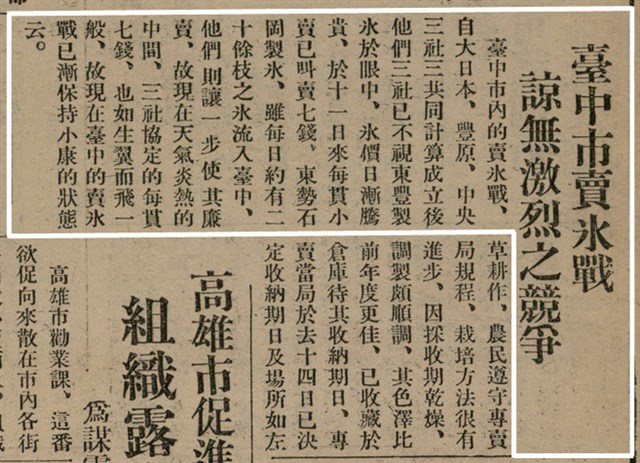 臺中市賣氷戰
諒無激烈之競爭
臺中市內的賣氷戰、
自大日本、豐原、中央
三社三共同計算成立後
他們三社已不視東豐製
氷於眼中、氷價日漸騰
貴、於十一日來每貫小
賣已叫賣七錢、東勢石
岡製氷、雖每日約有二
十餘枝之氷流入臺中、
他們則讓一步使其廉
賣、故現在天氣炎熱的
中間、三社協定的每貫
七錢、也如生翼而飛一
般、故現在臺中的賣氷
戰已漸保持小康的狀態
云。
草耕作、農民遵守專賣
局規程、栽培方法很有
進步、因採收期乾燥、
調製頗順調、其色澤比
前年度更佳、已收藏於
倉庫待其收納期日、專
賣當局於去十四日已決
定收納期日及場所如左
高雄市促進
組織露
為謀
高雄市勸業課、這番
欲促向來散在市內各街